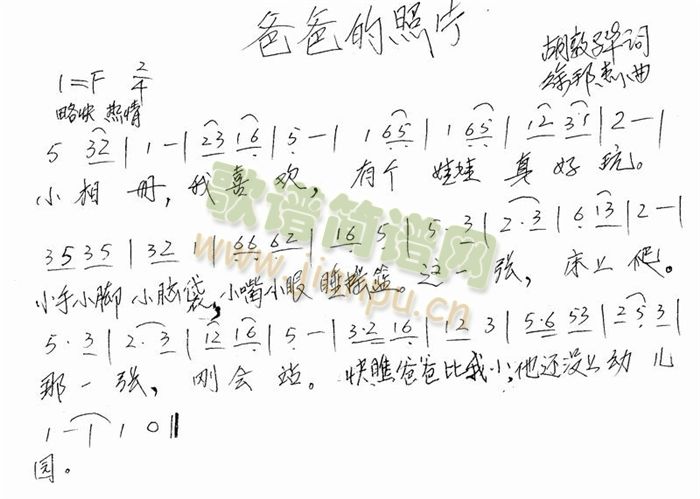 爸爸的照片
胡敦骅词
徐邦杰曲
1=F 2/4
略快 热情
5 32 | 1 — | 23 16 | 5 — | 1 65 | 1 65 | 12 31 | 2 — |
小相册,我喜欢,有个娃娃真好玩。
35 35 | 32 1 | 66 62 | 16 5 | 5· 3 | 2·3 | 6 13 | 2 — |
小手小脚小脑袋,小嘴小眼睡摇篮。这一张,床上爬。
5·3 | 2·3 | 12 16 | 5 — | 3·2 16 | 12 3 | 5·6 53 | 25 3 |
那一张,刚会站。快瞧爸爸比我小,他还没上幼儿
1 — | 1 0 ‖
园。
歌谱简谱网
www.jianpu.cn